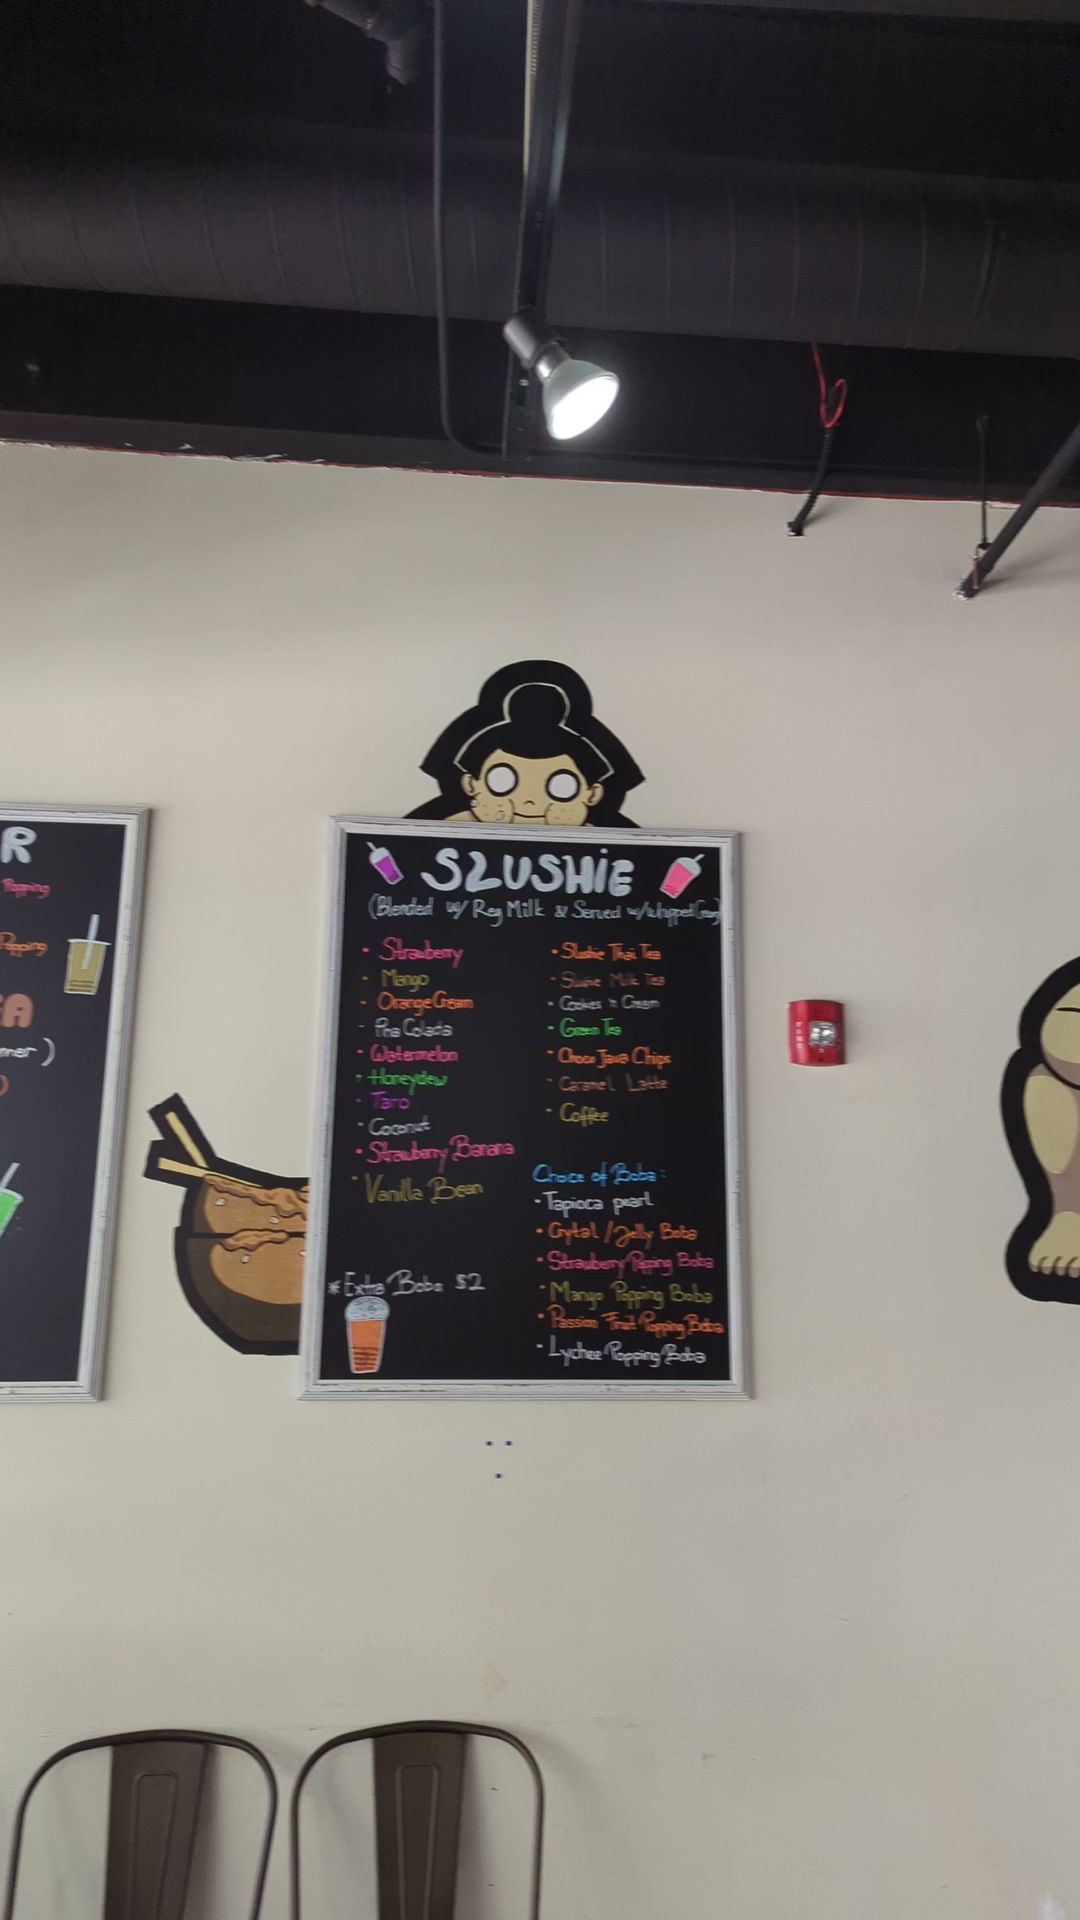 R
Popping
Popping
EA
mer )
)
SLUSHiE
(Blended w/ Reg Milk & Served w/whipped Cream)
• Strawberry
• Mango
• Orange Cream
• Pina Colada
• Watermelon
• Honeydew
• Taro
• Coconut
• Strawberry Banana
• Vanilla Bean
* Extra Boba $2
• Slushie Thai Tea
• Slushie Milk Tea
• Cookies 'n Cream
• Green Tea
• Choco Java Chips
• Caramel Latte
• Coffee
Choice of Boba :
• Tapioca pearl
• Crytal / Jelly Boba
• Strawberry Popping Boba
• Mango Popping Boba
• Passion Fruit Popping Boba
• Lychee Popping Boba
FIRE